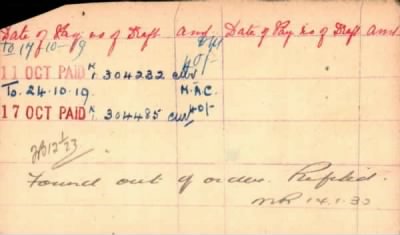 Date of Pay no of Draft Amt Date of Pay no of Draft Amt
To 17-10-19 40/-
11 OCT PAID 304232
To. 24.10.19. M.A.C.
17 OCT PAID 304485 40/-
Found out of order. Refiled.
14.1.30